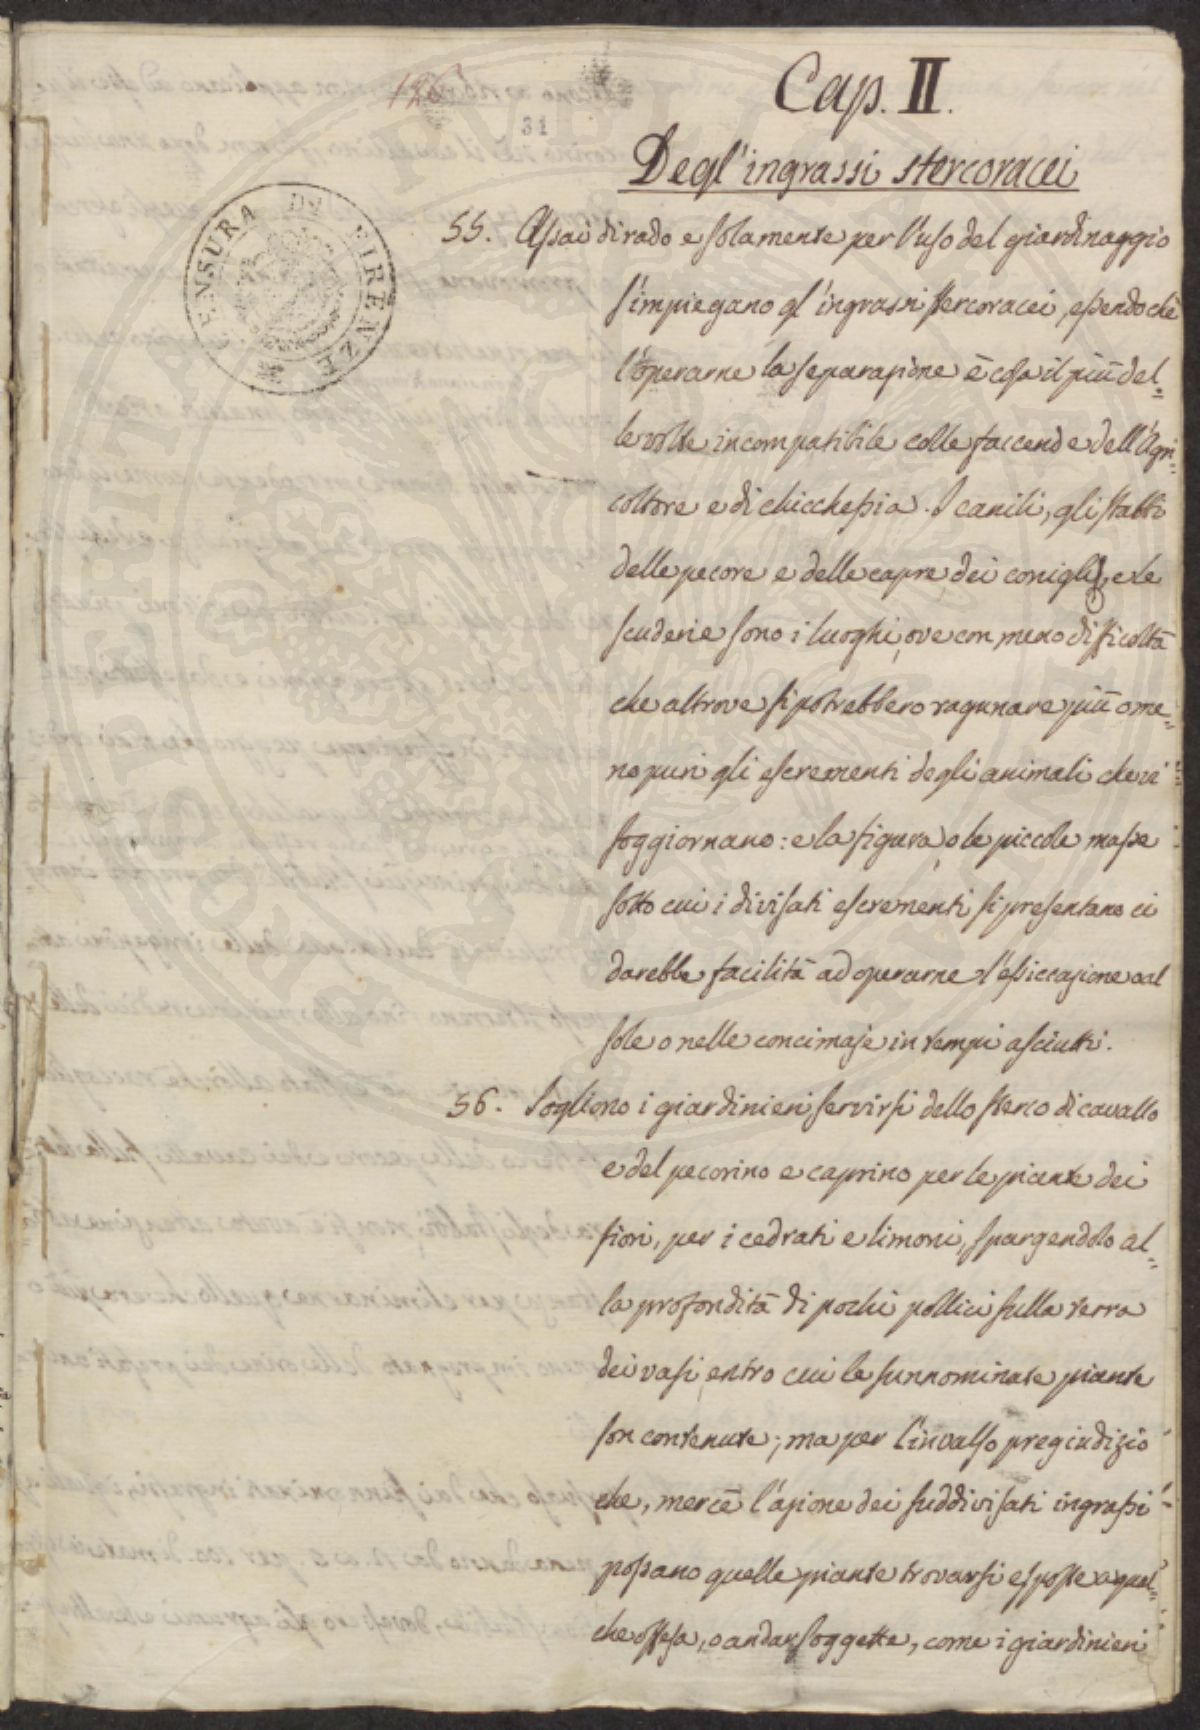 126
31
Cap. II.
Degl'ingrassi stercoracei
CENSURA DI FIRENZE
55. Assai di rado e solamente per l'uso del giardinaggio
s'impiegano gl'ingrassi stercoracei, essendochè
l'operarne la separazione è cosa il più del=
le volte incompatibile colle faccende dell'Agri=
coltore e di chicchessia. I canili, gli stabbi
delle pecore e delle capre dei conigli, e le
scuderie sono i luoghi, ove con meno difficoltà
che altrove si potrebbero ragunare più o me=
no puri gli escrementi degli animali che vi
soggiornano: e la figura, o le piccole masse
sotto cui i divisati escrementi si presentano ci
darebbe facilità ad operarne l'essiccazione o al
sole o nelle concimaje in tempi asciutti.
56. Sogliono i giardinieri servirsi dello sterco di cavallo
e del pecorino e caprino per le piante dei
fiori, per i cedrati e limoni, spargendolo al=
la profondità di pochi pollici sulla terra
dei vasi entro cui le sunnominate piante
son contenute; ma per l'invalso pregiudizio
che, mercè l'azione dei suddivisati ingrassi
possano quelle piante trovarsi esposte a qual=
che offesa, o andar soggette, come i giardinieri